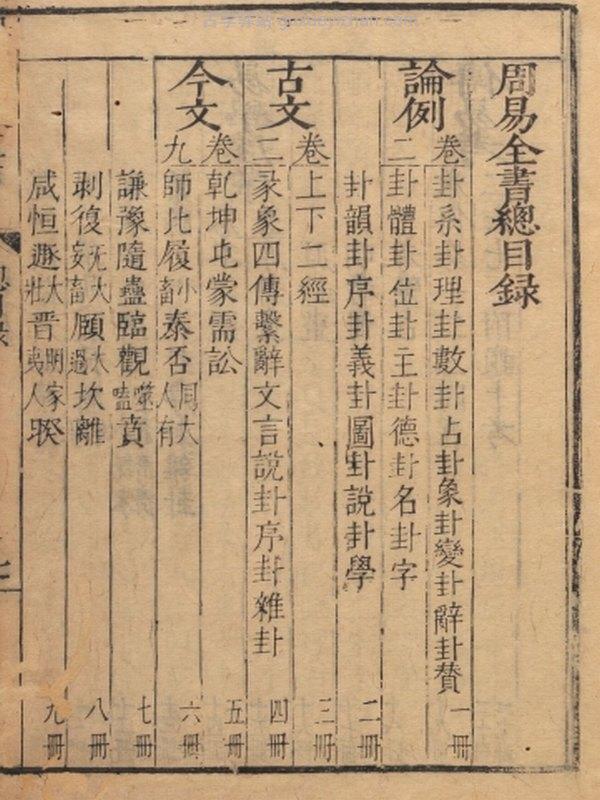 周易全書總目録
論例 卷二 卦系卦理卦數卦占卦象卦變卦辭卦賛 一冊
卦體卦位卦主卦德卦名卦字
卦韻卦序卦義卦圖卦說卦學 二冊
古文 卷二 上下二經 三冊
彖象四傳繫辭文言說卦序卦雜卦 四冊
今文 卷九 乾坤屯蒙需訟 五冊
師比履小畜泰否同人大有 六冊
謙豫隨蠱臨觀噬嗑賁 七冊
剥復无妄大畜頤大過坎離 八冊
咸恒遯大壯晋明夷家人睽 九冊